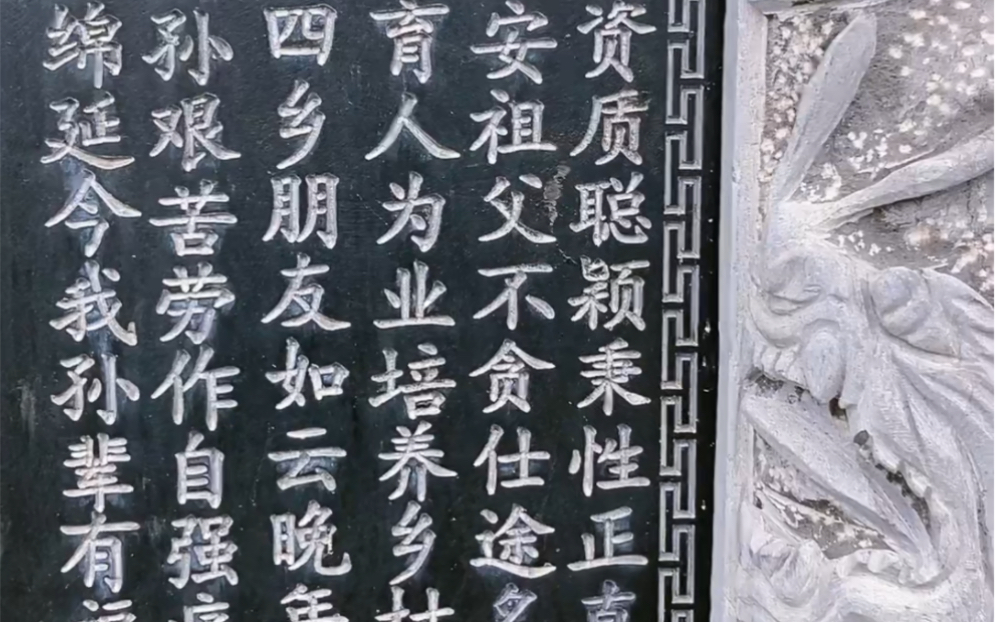 资质聪颖秉性正直
安祖父不贪仕途
育人为业培养乡村
四乡朋友如云晚年
孙艰苦劳作自强
绵延今我孙辈有